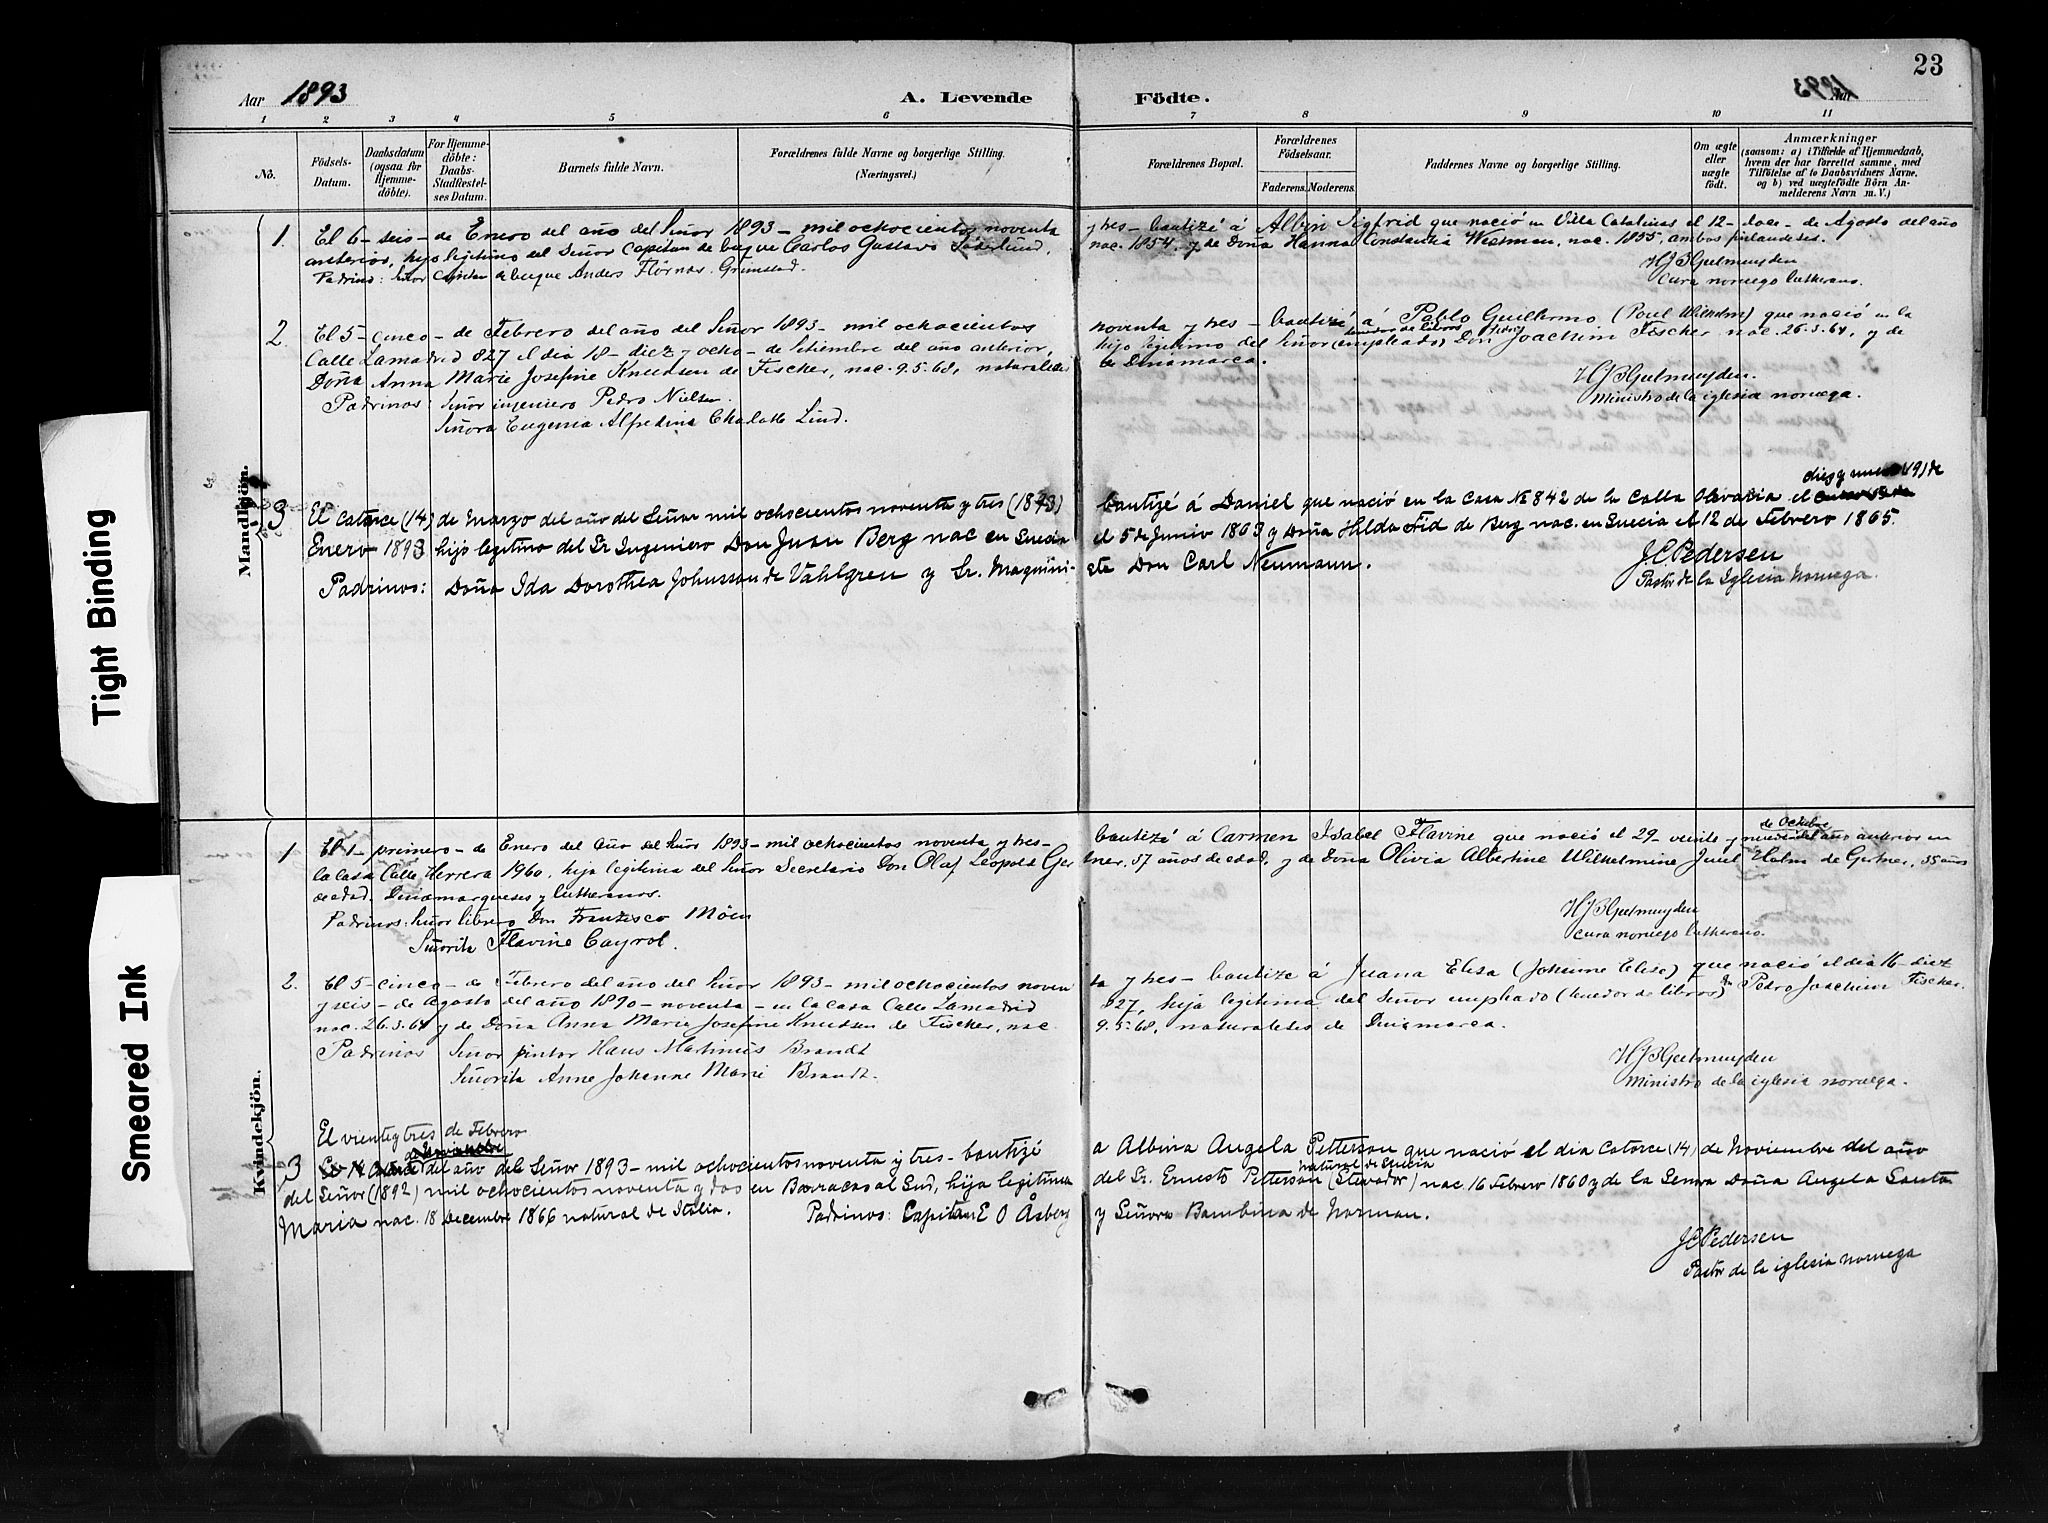 23
Aar 1893
A. Levende Födte.
1893 Aar
1 2 3 4 5 6 7 8 9 10 11
No.
Födsels-Datum.
Daabsdatum (ogsaa for Hjemme-döbte).
For Hjemme-döbte: Daabs-Stadfæstel-ses Datum.
Barnets fulde Navn.
Forældrenes fulde Navne og borgerlige Stilling. (Næringsvei.)
Forældrenes Bopæl.
Forældrenes Födselsaar.
Faderens. Moderens.
Faddernes Navne og borgerlige Stilling.
Om ægte eller uægte födt.
Anmærkninger
(saasom: a) i Tilfælde af Hjemmedaab, hvem der har forrettet samme, med Tilföielse af to Daabsvidners Navne. og b) ved uægtefödte Börn An-melderens Navn m. V.)
Mandkjön.
1. El 6- seis- de Enero del año del Señor 1893- mil ochocientos noventa y tres- bautizé á Albin Sigfrid que nació en Villa Catalinas el 12- doce- de Agosto del año
anterior, hijo legitimo del Señor Capitan de buque Carlos Gustavo Söderlund, nac. 1854, y de Doña Hanna Constantia Wesman, nac. 1855, ambos finlandeses.
Padrino: Señor Capitan de buque Anders Flörnæs. Grimstad.
HJBGeelmuyden
Cura noruego luterano.
2. El 5- cinco- de Febrero del año del Señor 1893- mil ochocientos noventa y tres- bautizé á Pablo Guillermo (Poul Wilhelm) que nació en la
Calle Lamadrid 827 el dia 18- diez y ocho- de Setiembre del año anterior, hijo legitimo del Señor (empleado) tenedor de libros Don Pedro Joachim Fischer nac. 26-3-64, y de
Doña Anna Marie Josefine Knudsen de Fischer, nac. 9.5.68, naturales de Dinamarca.
Padrinos: Señor ingeniero Pedro Nielsen.
Señora Eugenia Alfredina Charlotte Lind.
HJBGeelmuyden.
Ministro de la iglesia noruega.
3 El Catorce (14) de Marzo del año del Señor mil ochocientos noventa y tres (1893) bautizé á Daniel que nació en la Casa No 842 de la Calla Olivaria el diez y nueve (19) de
Enero 1893 hijo legitimo del Sr Ingeniero Don Juan Berg nac en Suecia el 5 de Junio 1863 y Doña Hilda Fid de Berg nac. en Suecia el 12 de Febrero 1865.
Padrinos: Doña Ida Dorothea Johnsson de Vahlgren y Sr. Maquini-ste Don Carl Neumann.
J.C. Pedersen
Pastor de la Iglesia Noruega.
Kvindekjön.
1 El 1- primero- de Enero del año del Señor 1893- mil ochocientos noventa y tres- bautizé á Carmen Isabel Flavine que nació el 29- veinte y nueve de Octubre del año anterior en
la casa Calle Herrera 1960, hija legitima del Señor Secretario Don Olaf Leopold Gertner, 37 años de edad, y de Doña Olivia Albertine Wilhelmine Juul Holm de Gertner, 35 años
de edad. Dinamarqueses y lutheranos.
Padrinos: Señor librero Don Franzisco Möen
Señorita Flavine Cayrol.
HJBGeelmuyden
cura noruego lutherano.
2. El 5- cinco- de Febrero del año del Señor 1893- mil ochocientos noventa y tres- bautize á Juana Elisa (Johanne Elise) que nació el dia 16- diez
y seis- de Agosto del año 1890- noventa- en la casa Calle Lamadrid 827, hija legitima del Señor empleado (tenedor de libros) Dn Pedro Joachim Fischer.
nac. 26.3.64 y de Doña Anna Marie Josefine Knudsen de Fischer, nac. 9.5.68, naturales de Dinamarca.
Padrinos Señor pintor Hans Martinus Brandt
Señorita Anne Johanne Marie Brandt.
HJBGeelmuyden
Ministro de la iglesia noruega.
El vientey tres de Febrero
3 del año del Señor 1893- mil ochocientos noventa y tres- bautizé a Albina Angela Petterson que nació el dia Catorce (14) de Noviembre del año
del Señor (1892) mil ochocientos noventa y dos en Barracas al Sud, hija legitima del Sr. Ernesto Petterson natural de Suecia (Stevador) nac 16 Febrero 1860 y de la Senora Doña Angela Santa
Maria nac. 18 Decembre 1866 natural de Italia. Padrinos: Capitan E O Åsberg y Señora Bambina de Norman.
J.C. Pedersen
Pastor de la iglesia noruega
Tight Binding
Smeared Ink